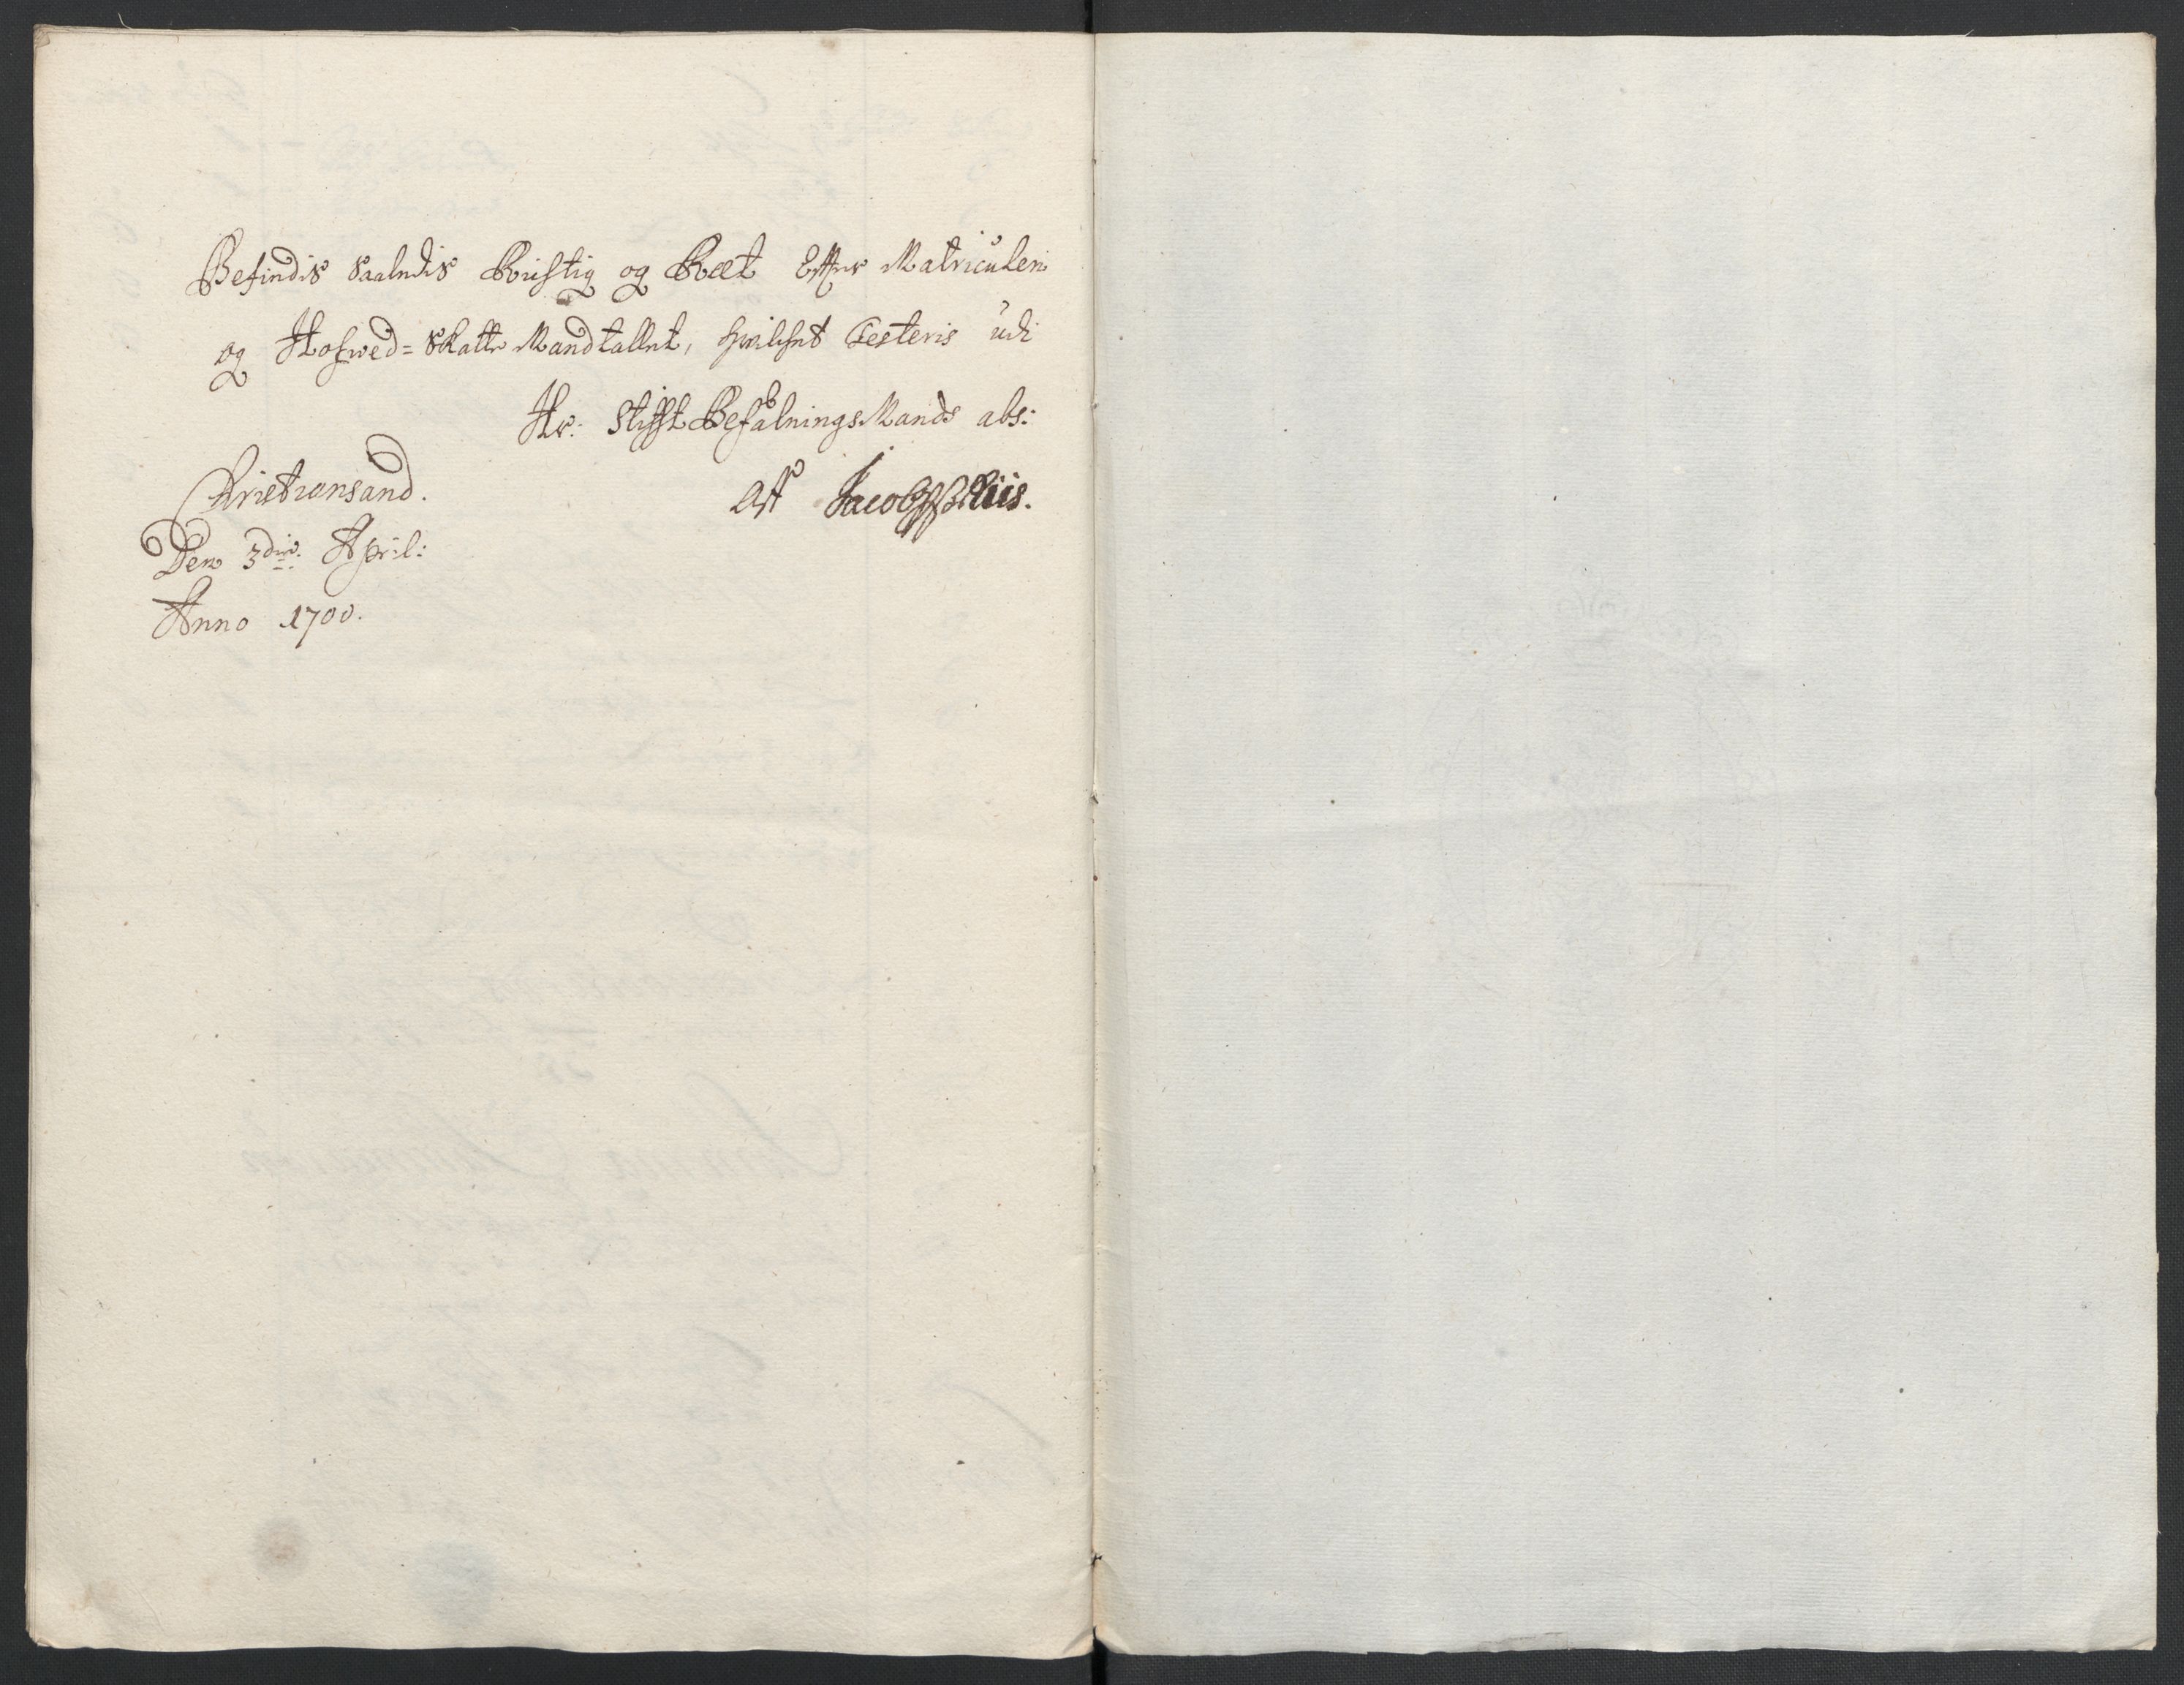 Befindis Saaledis Rigtig og Ræt Effter Matriculen
og Hofwed=Skatte Mandtallet, hvilchet Testeris udi
Hr: Stifft BefalningsMands abs:
Christiansand.
Den 3die: April:
Anno 1700.